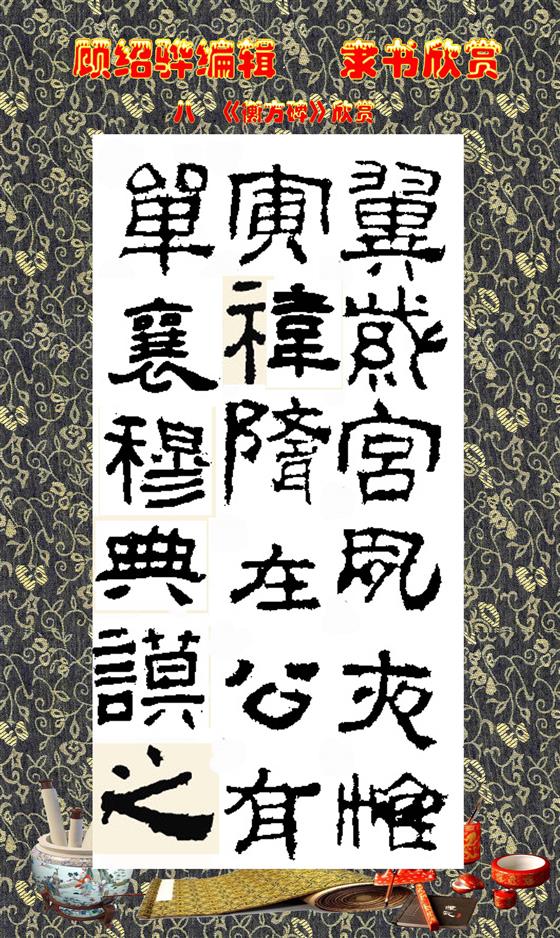 顾绍骅编辑 隶书欣赏
八 《衡方碑》欣赏
翼紫宮夙夜惟
寅禕隋在公有
單襄穆典謨之